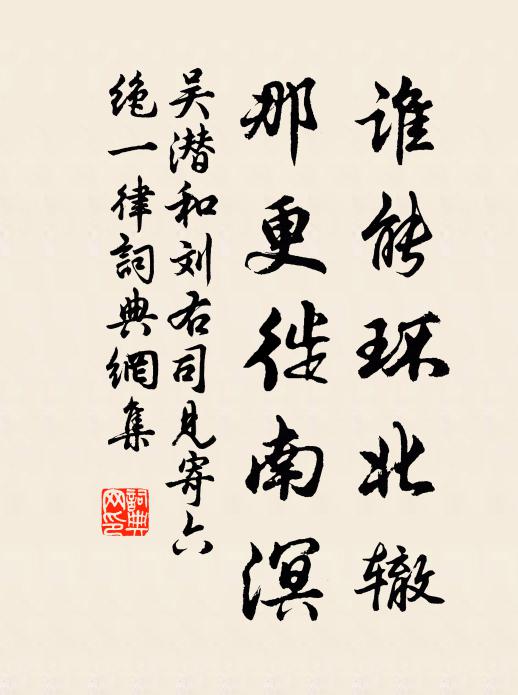 谁能环北辙
那更徙南溟
吴潜和刘右司见寄六
绝一律詞典網集
詞典网印